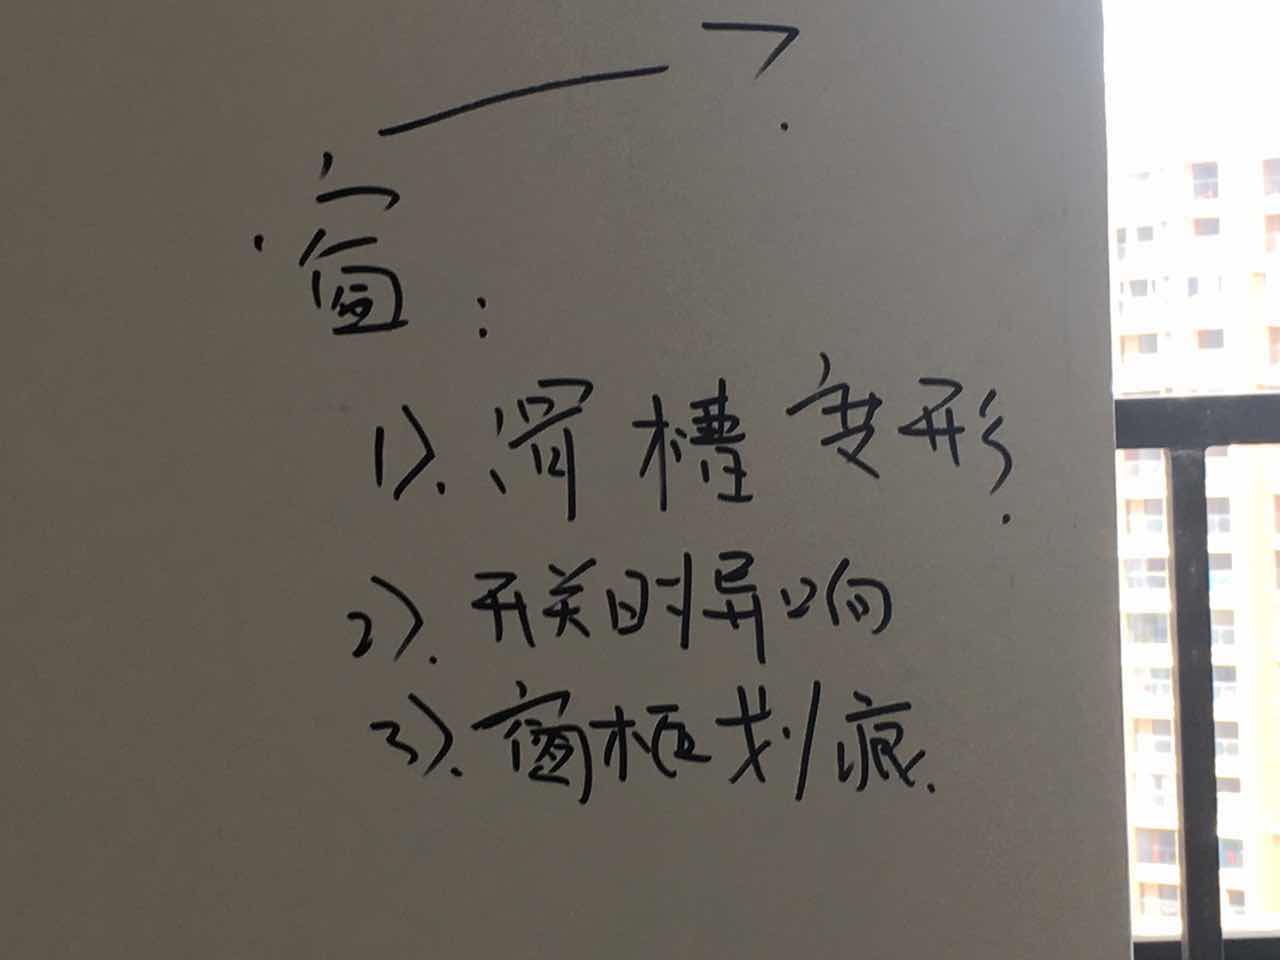 窗:
1). 滑槽变形.
2). 开关时异响
3). 窗框划痕.